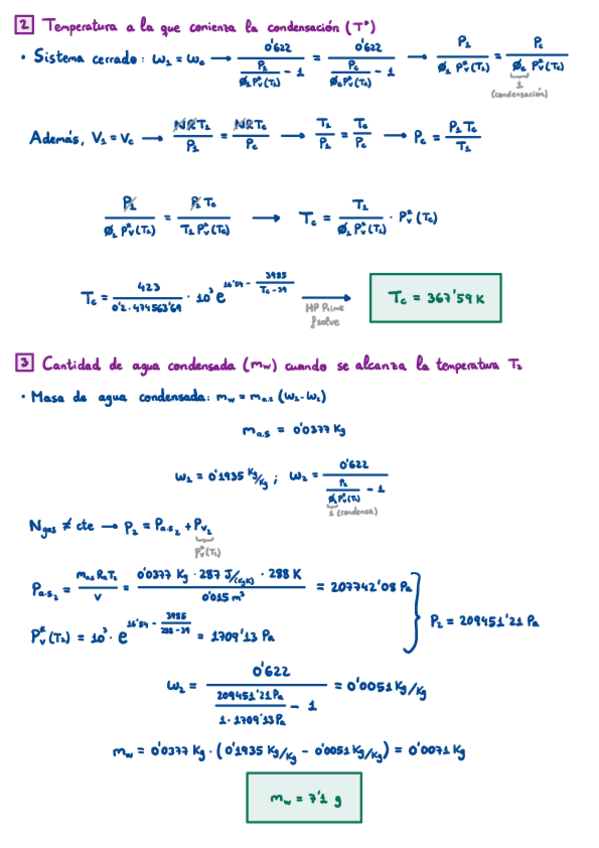 2 Temperatura a la que comienza la condensación (T*)
• Sistema cerrado: ω₁ = ωc → 0'622 / (P₁ / (ø₁ Pᵥ*(T₁)) - 1) = 0'622 / (Pc / (øc Pᵥ*(Tc)) - 1) → P₁ / (ø₁ Pᵥ*(T₁)) = Pc / (øc Pᵥ*(Tc))
1
(condensación)
Además, V₁ = Vc → NRT₁ / P₁ = NRTc / Pc → T₁ / P₁ = Tc / Pc → Pc = P₁ Tc / T₁
P₁ / (ø₁ Pᵥ*(T₁)) = P₁ Tc / (T₁ Pᵥ*(Tc)) → Tc = T₁ / (ø₁ Pᵥ*(T₁)) · Pᵥ*(Tc)
Tc = 423 / (0'2 · 474563'69) · 10³ e^(16'54 - 3985 / (Tc - 39)) → Tc = 367'59 K
HP Prime
fsolve
3 Cantidad de agua condensada (mw) cuando se alcanza la temperatura T₂
• Masa de agua condensada: mw = ma.s (ω₁-ω₂)
ma.s = 0'0377 Kg
ω₁ = 0'1935 Kg/Kg ; ω₂ = 0'622 / (P₂ / (ø₂ Pᵥ*(T₂)) - 1)
1 (condensa)
Ngas ≠ cte → P₂ = Pa.s₂ + Pv₂
Pᵥ*(T₂)
Pa.s₂ = ma.s Ra T₂ / V = 0'0377 Kg · 287 J/(KgK) · 288 K / 0'015 m³ = 207742'08 Pa
Pᵥ*(T₂) = 10³ · e^(16'54 - 3985 / (288-39)) = 1709'13 Pa
P₂ = 209451'21 Pa
ω₂ = 0'622 / (209451'21 Pa / (1 · 1709'13 Pa) - 1) = 0'0051 Kg/Kg
mw = 0'0377 Kg · (0'1935 Kg/Kg - 0'0051 Kg/Kg) = 0'0071 Kg
mw = 7'1 g